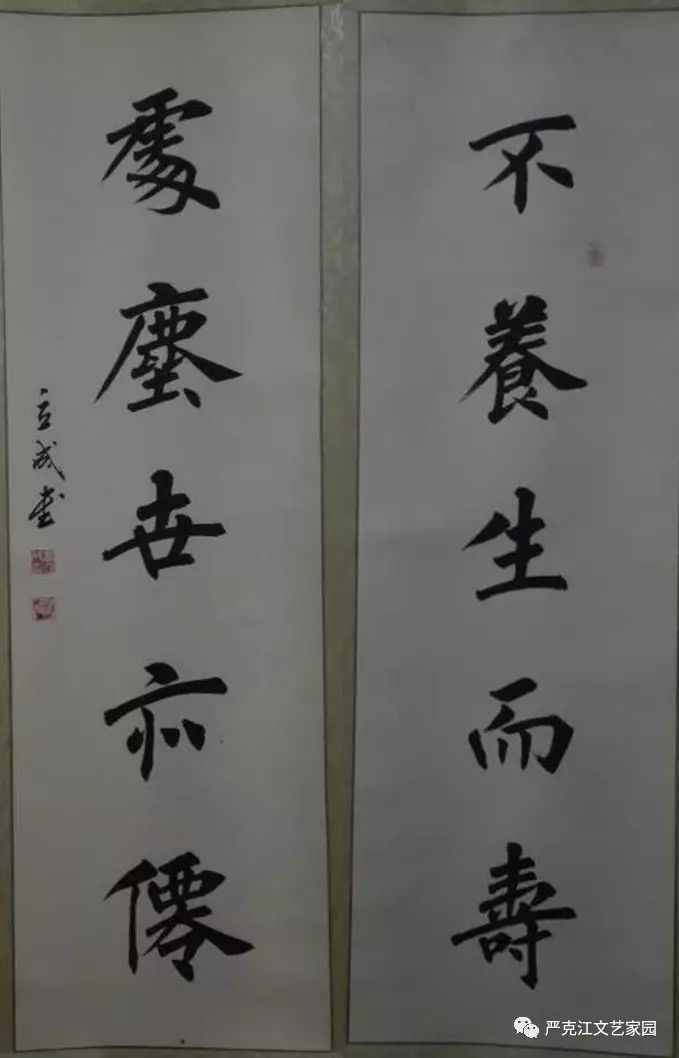 不養生而壽
處塵世亦僊
立成書
严克江文艺家园